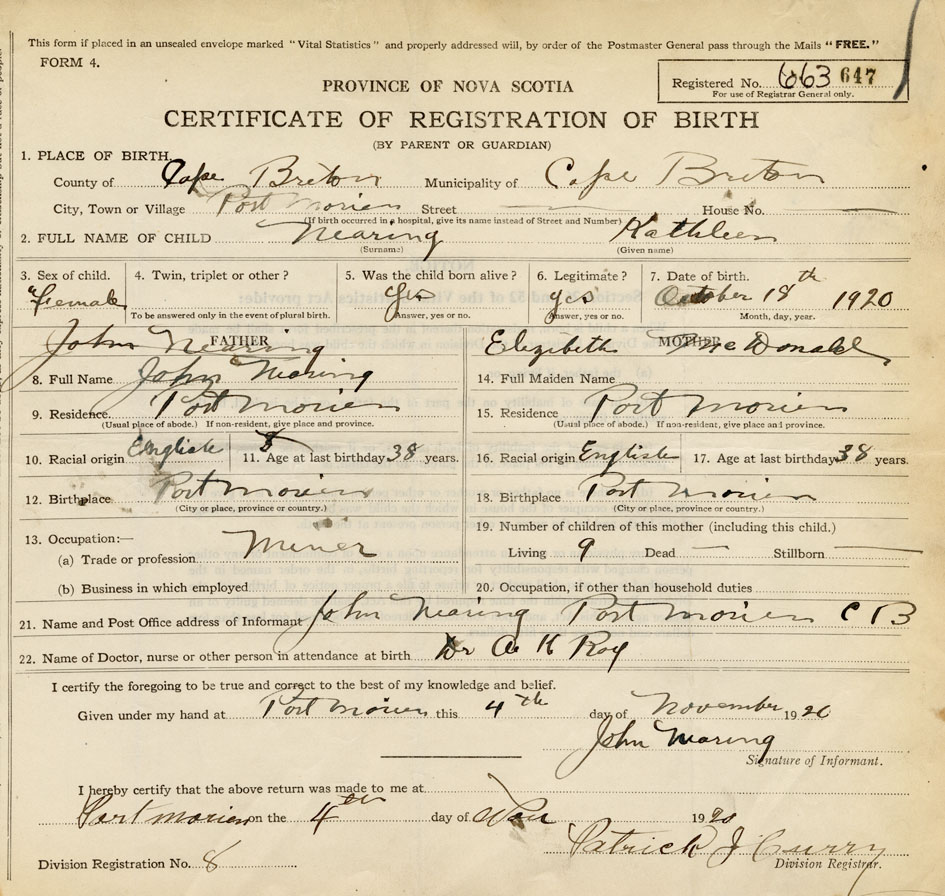 This form if placed in an unsealed envelope marked "Vital Statistics" and properly addressed will, by order of the Postmaster General pass through the Mails "FREE."
FORM 4.
Registered No. 663 647
For use of Registrar General only.
PROVINCE OF NOVA SCOTIA
CERTIFICATE OF REGISTRATION OF BIRTH
(BY PARENT OR GUARDIAN)
1. PLACE OF BIRTH.
County of Cape Breton Municipality of Cape Breton
City, Town or Village Port Morien Street — House No. —
(If birth occurred in a hospital, give its name instead of Street and Number)
2. FULL NAME OF CHILD Nearing Kathleen
(Surname) (Given name)
3. Sex of child. 4. Twin, triplet or other? 5. Was the child born alive? 6. Legitimate? 7. Date of birth.
Female Yes yes October 18th 1920
To be answered only in the event of plural birth. Answer, yes or no. Answer, yes or no. Month, day, year.
FATHER MOTHER
John Nearing Elezibeth McDonald
8. Full Name John Nearing 14. Full Maiden Name
9. Residence Port Morien 15. Residence Port Morien
(Usual place of abode.) If non-resident, give place and province. (Usual place of abode.) If non-resident, give place and province.
10. Racial origin English 11. Age at last birthday 38 years. 16. Racial origin English 17. Age at last birthday 38 years.
12. Birthplace Port Morien 18. Birthplace Port Morien
(City or place, province or country.) (City or place, province or country.)
13. Occupation:— 19. Number of children of this mother (including this child.)
(a) Trade or profession Miner Living 9 Dead — Stillborn —
(b) Business in which employed 20. Occupation, if other than household duties
21. Name and Post Office address of Informant John Nearing Port Morien C B
22. Name of Doctor, nurse or other person in attendance at birth Dr A K Roy
I certify the foregoing to be true and correct to the best of my knowledge and belief.
Given under my hand at Port Morien this 4th day of November 1920
John Nearing
Signature of Informant.
I hereby certify that the above return was made to me at
Port Morien on the 4th day of Nov 1920
Patrick J Curry
Division Registration No. 8 Division Registrar.